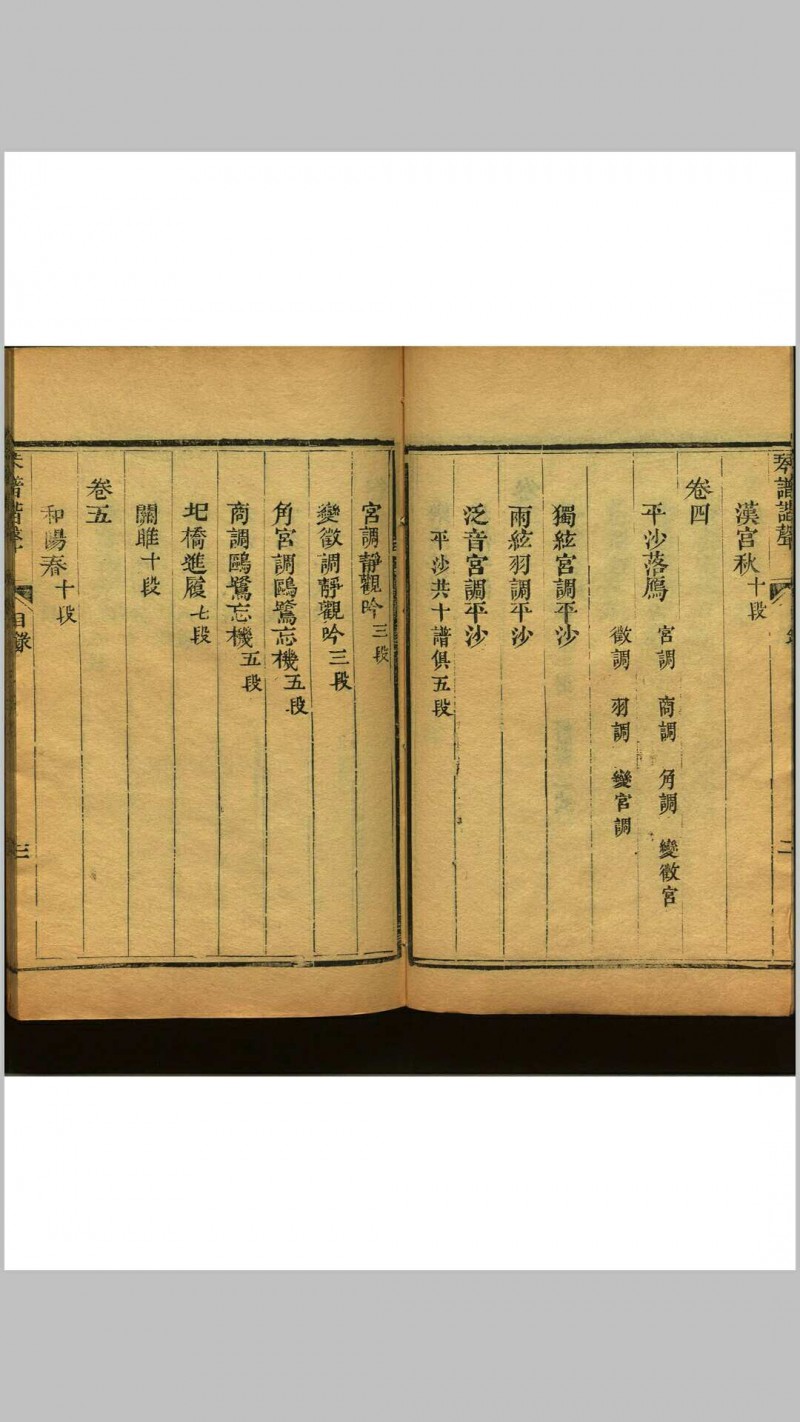 琴譜諧聲
二
漢宮秋十段
卷四
平沙落鴈 宮調 商調 角調 變徵宮
徵調 羽調 變宮調
獨絃宮調平沙
雨絃羽調平沙
泛音宮調平沙
平沙共十譜俱五段
宮調靜觀吟三段
變徵調靜觀吟三段
角宮調鷗鷺忘機五段
商調鷗鷺忘機五段
圯橋進履七段
關雎十段
卷五
和陽春十段
譜諧聲 目錄 三